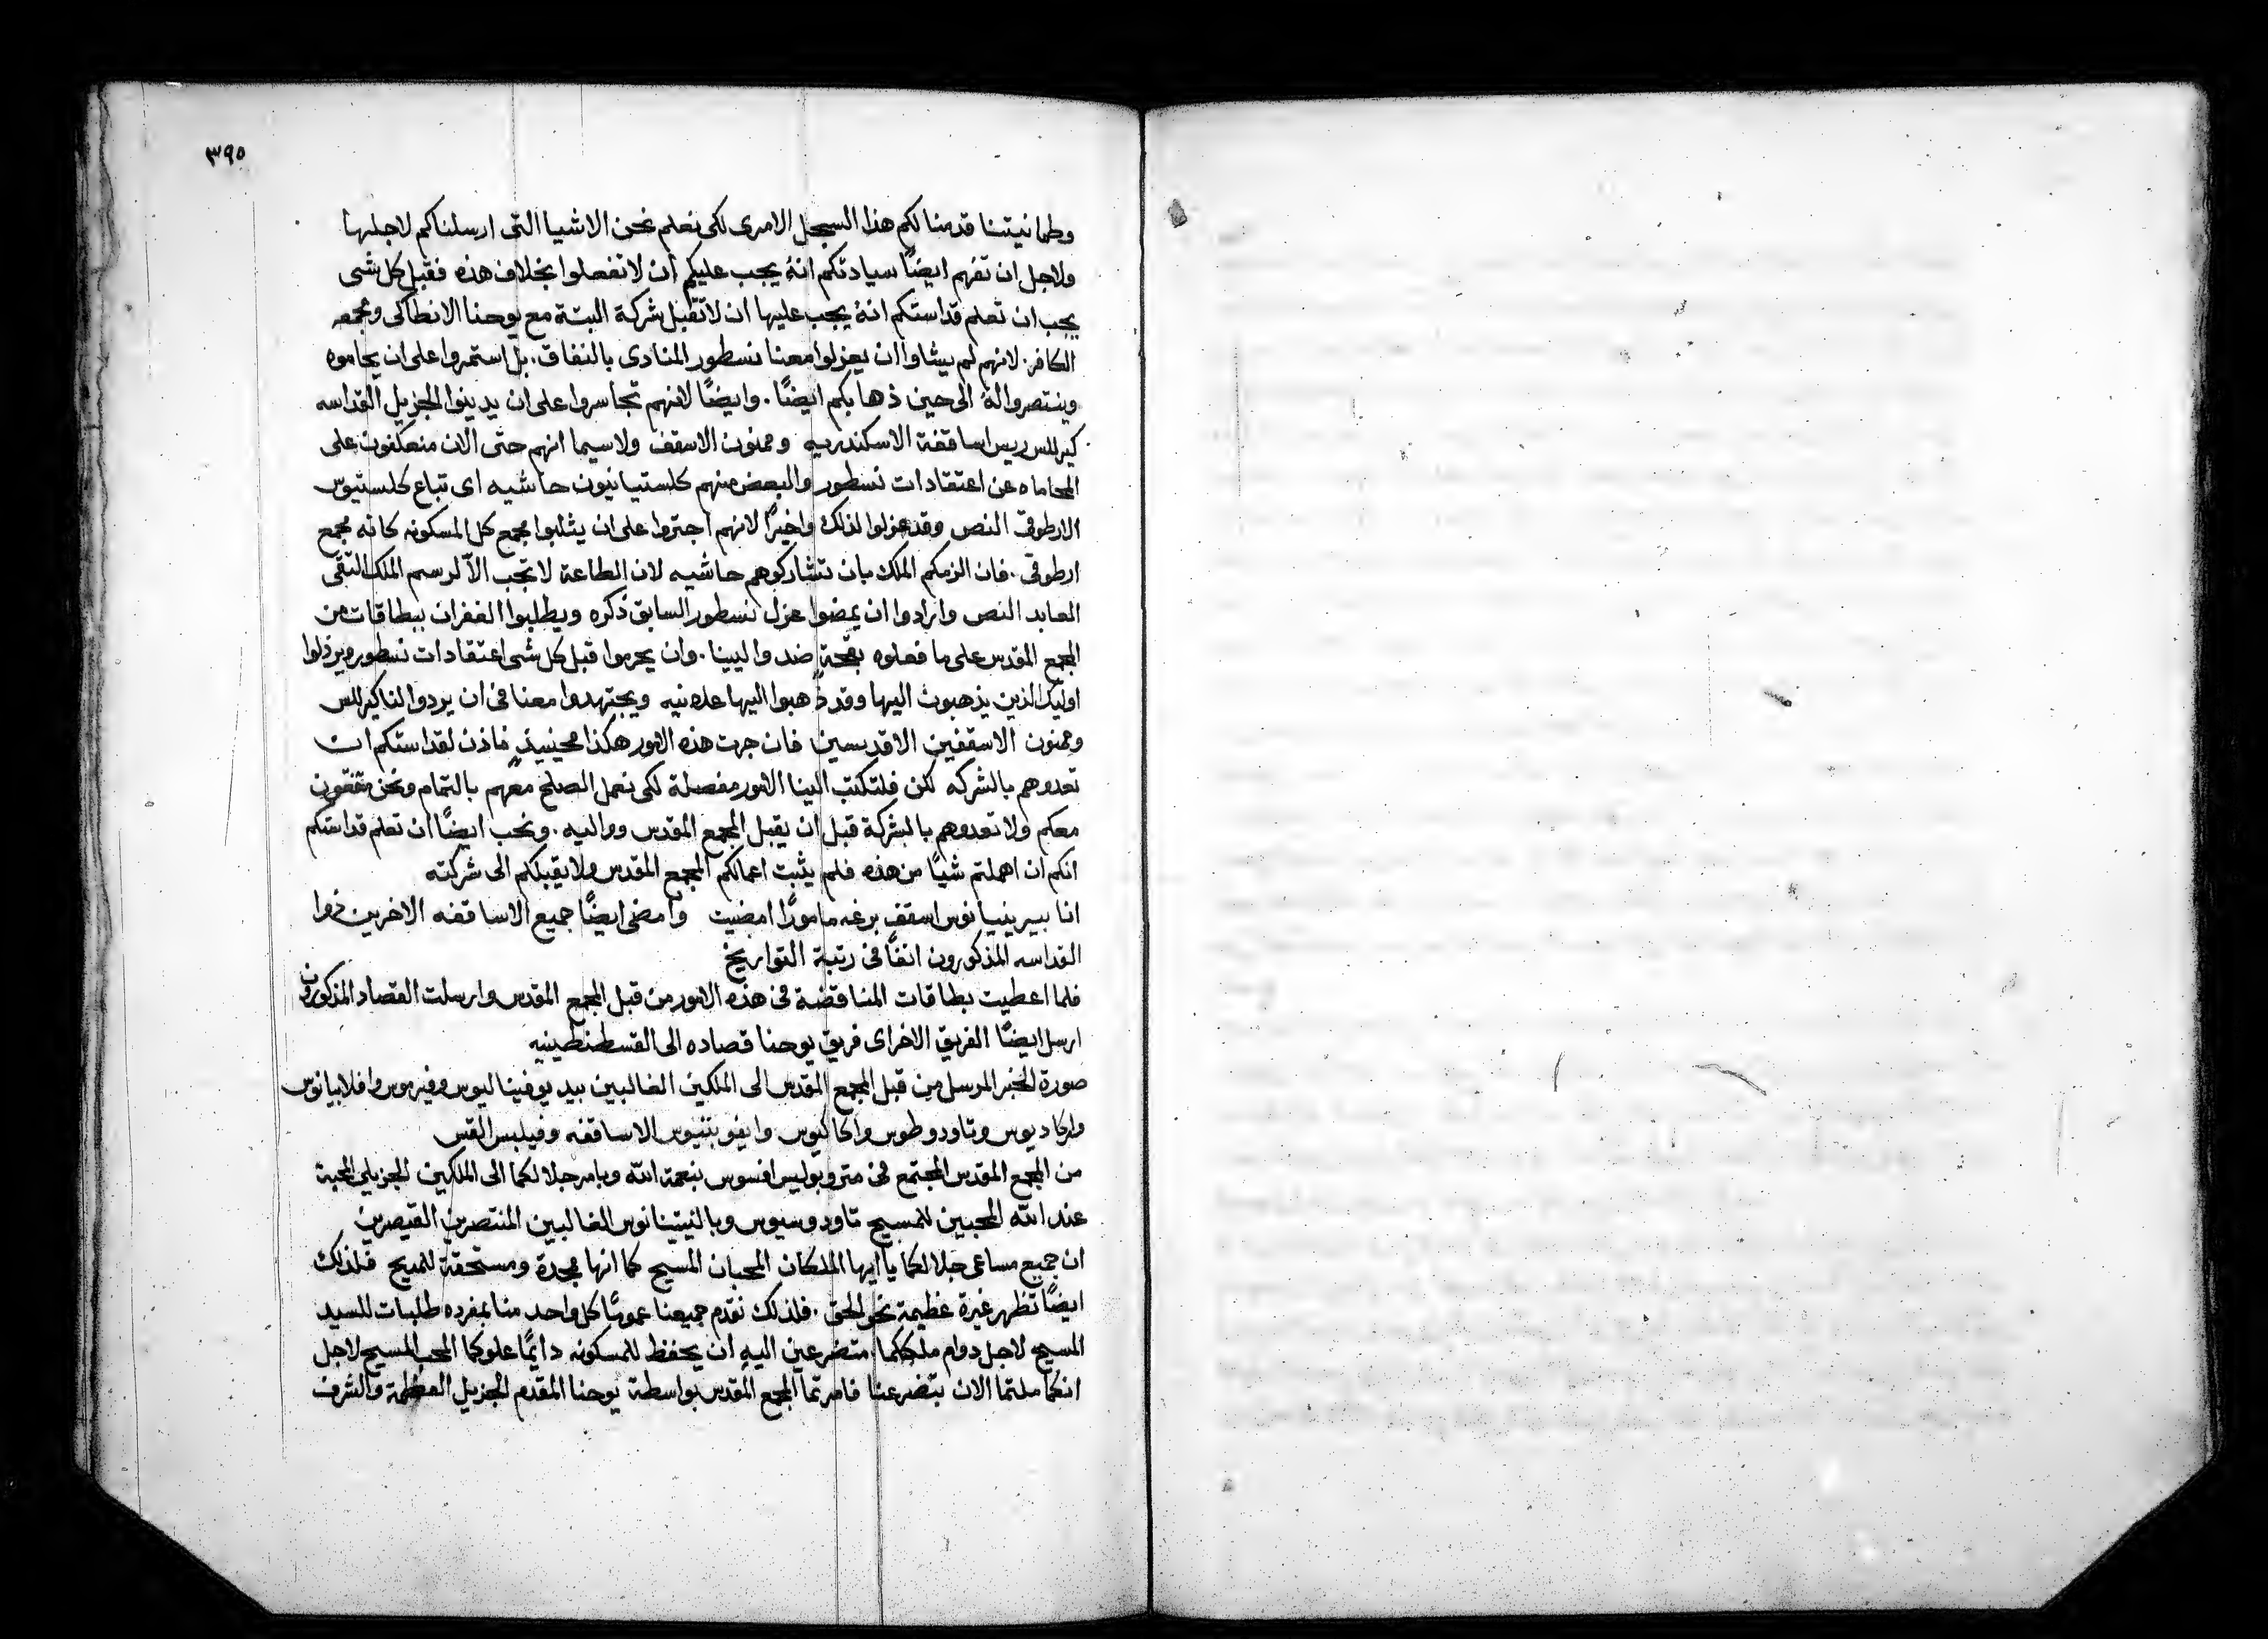 ٣٩٥
وطمانيتنا قدمنا لكم هذا السجل الامرى لكى نعلم نحن الاشيا التى ارسلناكم لاجلها
ولاجل ان تفهم ايضًا سيادتكم انهُ يجب عليكم ان لا تفعلوا بخلاف هذه فقبل كل شى
يجب ان تعلم قداستكم انهُ يجب عليها ان لا تقبل شركة البتة مع يوحنا الانطاكى ومجمعه
الكافر. لانهم لم يشاوا ان يعزلوا معنا نسطور المنادى بالنفاق. بل استمروا على ان يحاموه
وينتصروا لهُ الى حين ذهابكم ايضًا. وايضًا لانهم تجاسروا على ان يدينوا الجزيل القداسه
كيرللس ريس اساقفة الاسكندريه وممنون الاسقف ولاسيما انهم حتى الان منعكفون على
المحاماه عن اعتقادات نسطور والبعض منهم كلستيانيون حاشيه اى تباع كلستيوس
الارطوقى النص وقد عزلوا لذلك واخيرًا لانهم اجتروا على ان يثلبوا مجمع كل المسكونه كانه مجمع
ارطوقى. فان الزمكم الملك بان تشاركوهم حاشيه لان الطاعة لا تجب الّا لرسم الملك التقى
العابد النص وارادوا ان يمضوا عزل نسطور السابق ذكره ويطلبوا الغفران ببطاقات من
المجمع المقدس على ما فعلوه بقحة ضد والينا. وان يحرموا قبل كل شى اعتقادات نسطور ويرذلوا
اوليك الذين يذهبون اليها وقد ذهبوا اليها علانيه ويجتهدوا معنا فى ان يردوا لنا كيرللس
وممنون الاسقفين الاقديسين فان جرت هذه الامور هكذا فحينيذٍ ناذن لقداستكم ان
تعدوهم بالشركه لكن فلتكتب الينا الامور مفصلة لكى نعمل الصلح معهم بالتمام ونحن متفقون
معكم ولا تعدوهم بالشركة قبل ان يقبل المجمع المقدس وواليه. ونحب ايضًا ان تعلم قداستكم
انكم ان اهملتم شيًا من هذه فلم يثبت اعمالكم المجمع المقدس ولا يقبلكم الى شركته
انا بيرينيانوس اسقف برغه مامورًا امضيت وامضى ايضًا جميع الاساقفه الاخرين ذوا
القداسه المذكورون انفًا فى رتبة التواريخ
فلما اعطيت بطاقات المناقضة فى هذه الامور من قبل المجمع المقدس وارسلت القصاد المذكورون
ارسل ايضًا الفريق الاخر اى فريق يوحنا قصاده الى القسطنطينيه
صورة الخبر المرسل من قبل المجمع المقدس الى الملكين الغالبين بيد يوفيناليوس وفيرموس وافلابيانوس
واركاديوس وتاودوطوس واكاكيوس وايفوبتيوس الاساقفه وفيلبس القس
من المجمع المقدس المجتمع فى متروبوليس افسوس بنعمة الله وبامر جلالكما الى الملكين الجزيلى المحبة
عند الله المحبين للمسيح تاودوسيوس وبالنيتينانوس الغالبين المنتصرين القيصرين
ان جميع مساعى جلالكما يا ايها الملكان المحبان المسيح كما انها ممجدة ومستحقة للمديح فلذلك
ايضًا تظهر غيرة عظيمة نحو الحق. فلذلك نقدم جميعنا عمومًا كل واحد منا بمفرده طلبات للسيد
المسيح لاجل دوام ملككما. متضرعين اليه ان يحفظ للمسكونه دايمًا علوكما المحب المسيح لاجل
انكما ملتما الان بتضرعنا فامرتما المجمع المقدس بواسطة يوحنا المقدم الجزيل العظمة والشرف